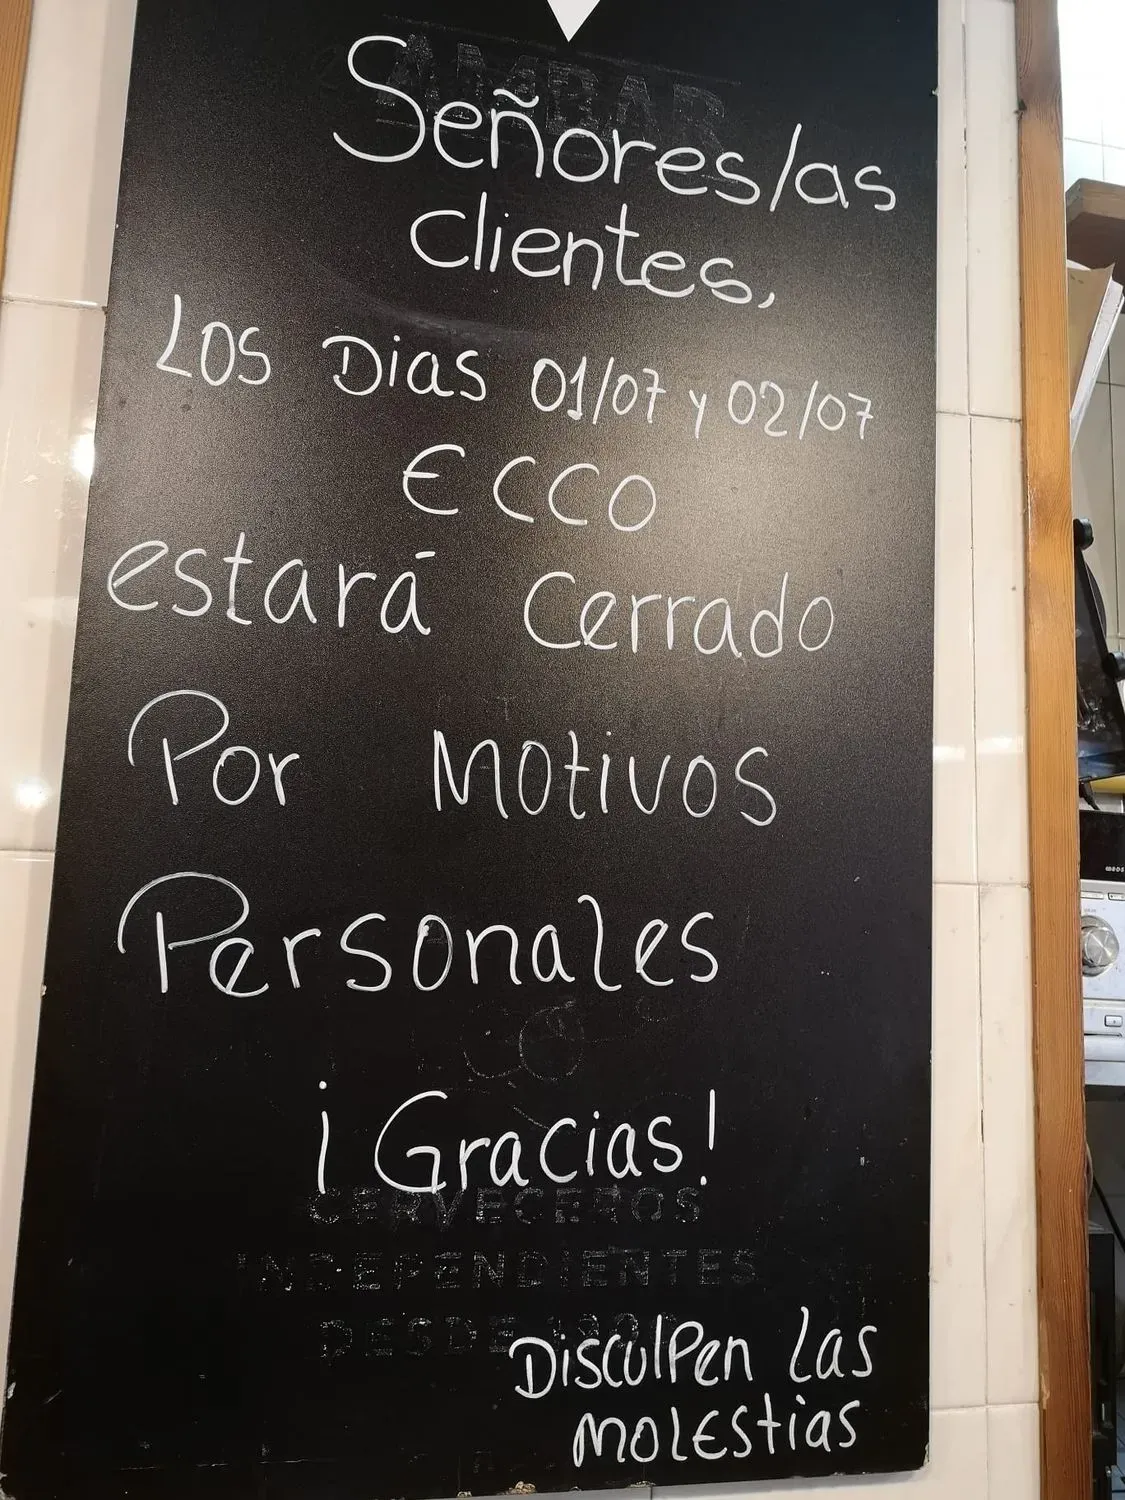 AMBAR
Señores/as
clientes,
Los Dias 01/07 y 02/07
ECCO
estará Cerrado
Por Motivos
Personales
¡Gracias!
CERVECEROS
INDEPENDIENTES
DESDE
Disculpen las
molestias